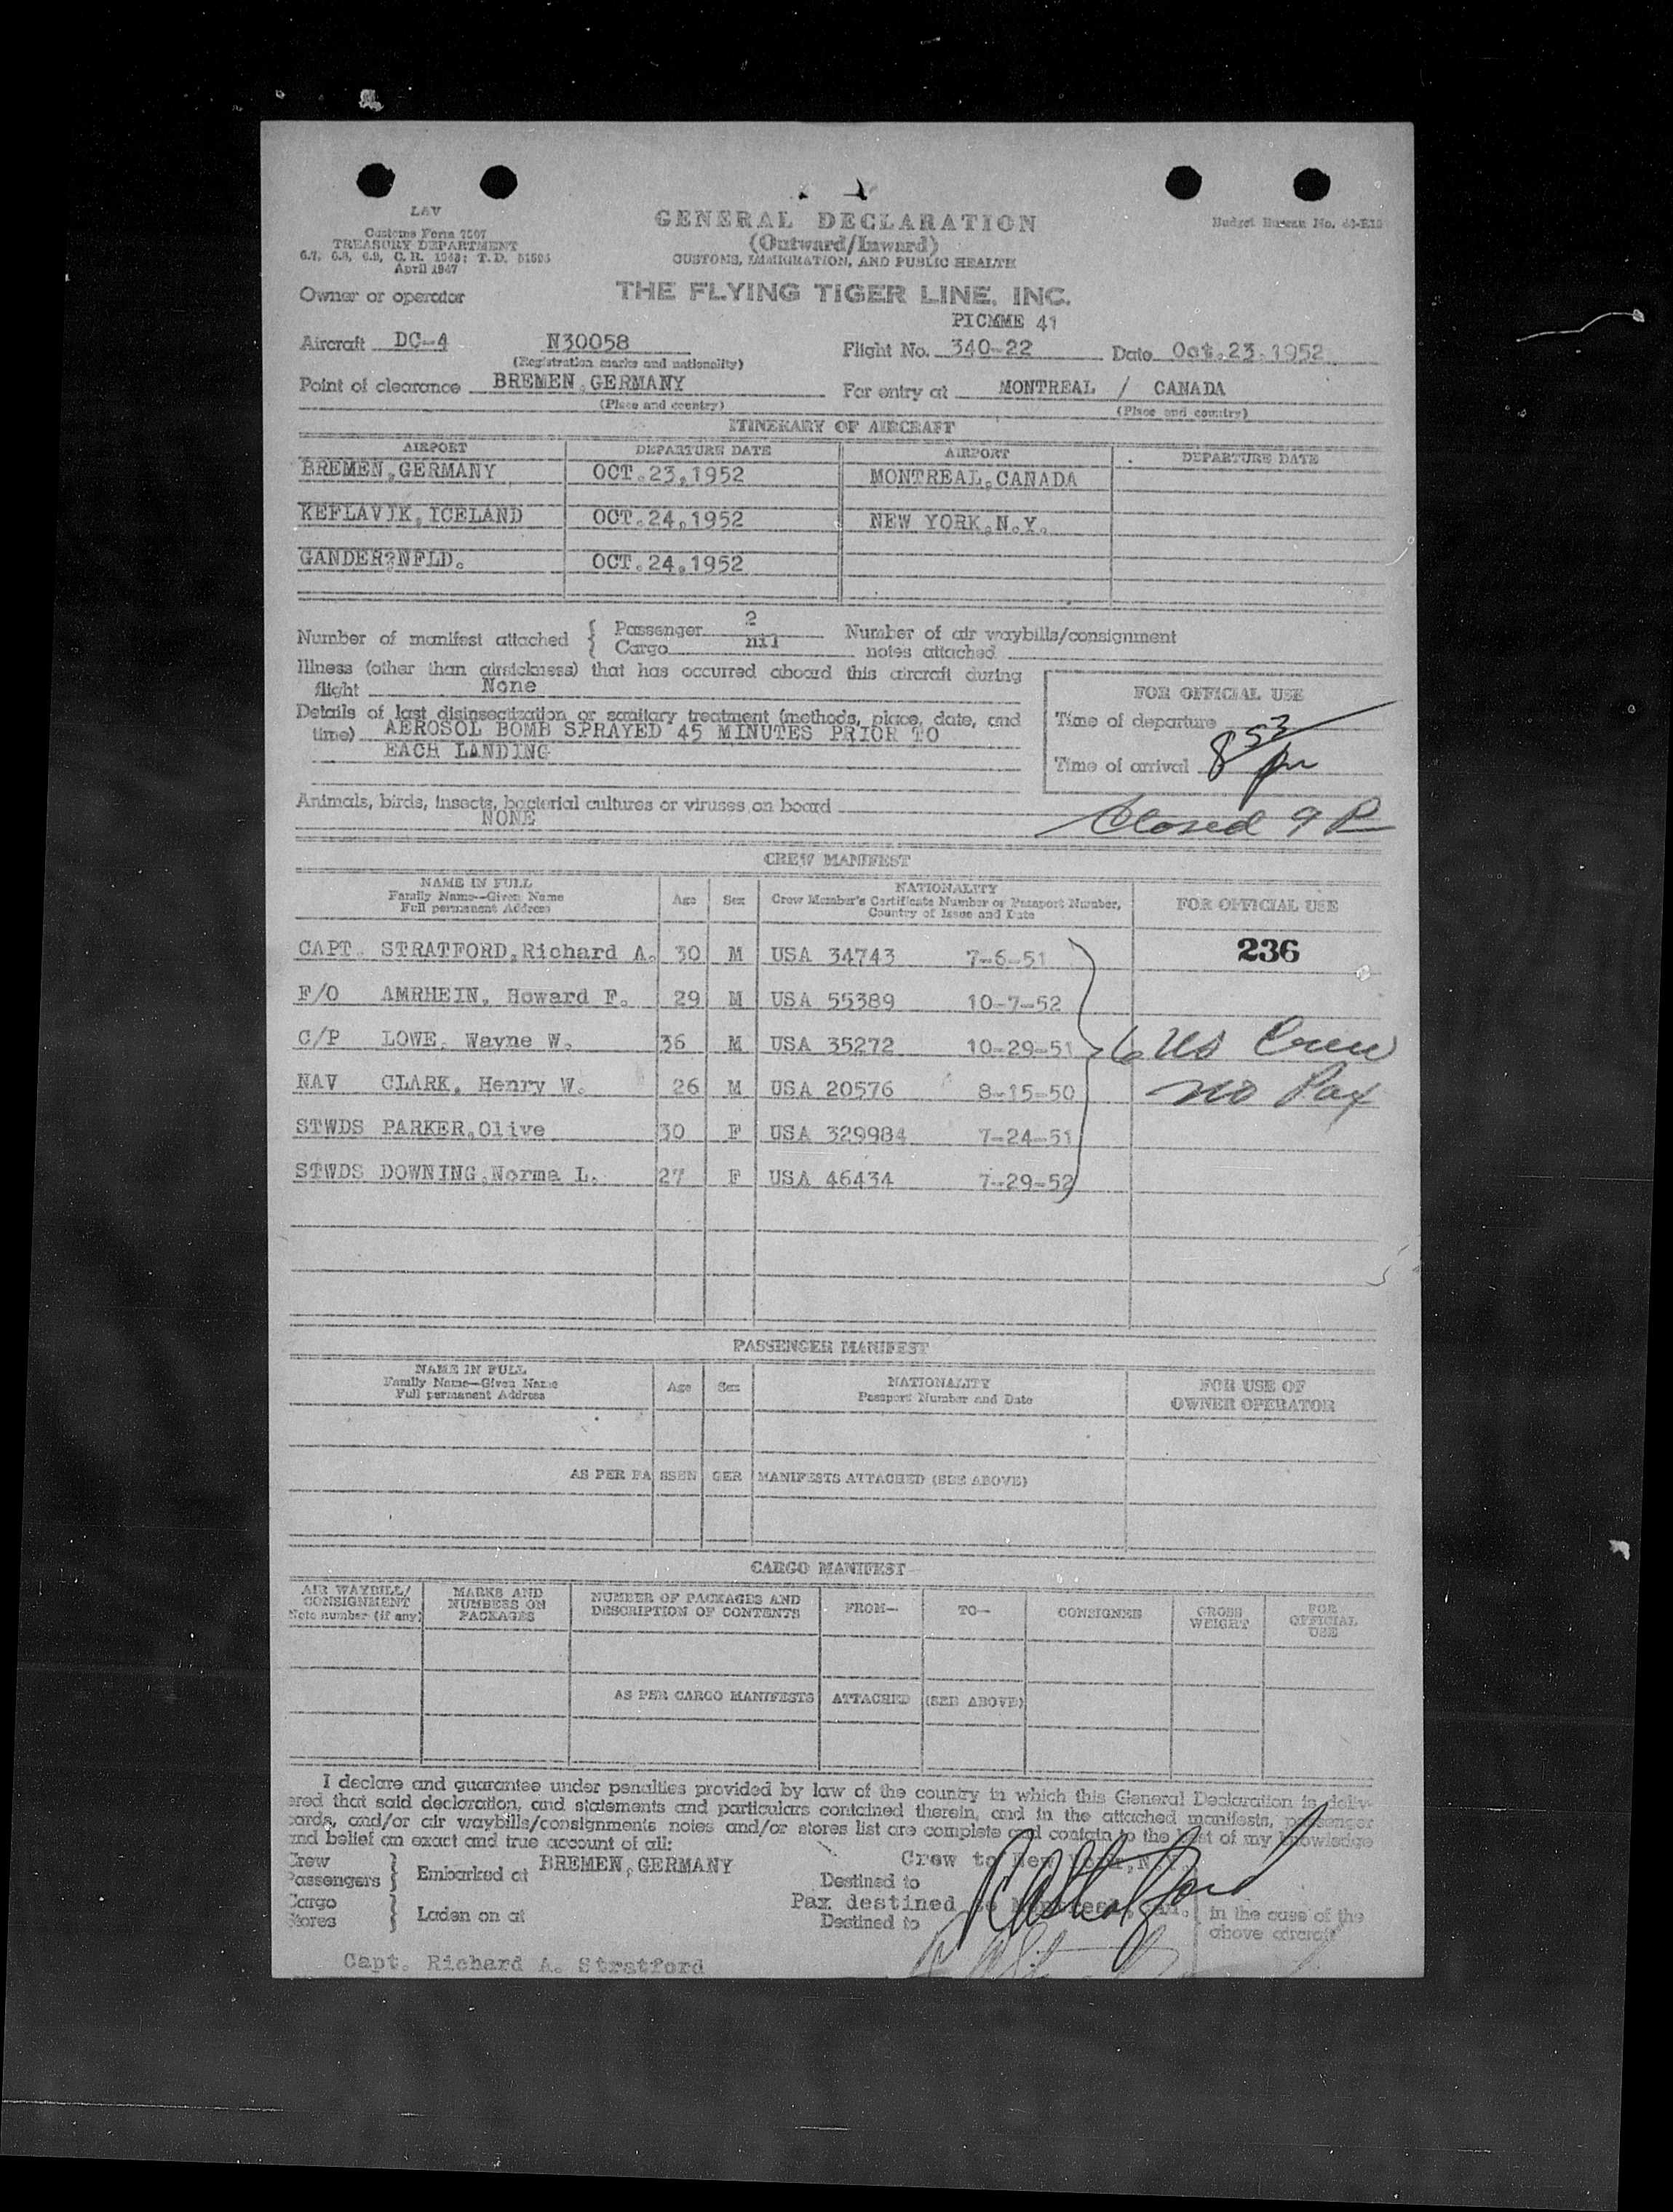 LAV
Customs Form 7507
TREASURY DEPARTMENT
6.7, 6.8, 6.9, C. R. 1943; T. D.
April 1947
GENERAL DECLARATION
(Outward/Inward)
CUSTOMS, IMMIGRATION, AND PUBLIC HEALTH
Budget Bureau No.
Owner or operator
THE FLYING TIGER LINE, INC.
PICMME 41
Aircraft DC-4 N30058 Flight No. 340-22 Date Oct.23.1952
(Registration marks and nationality)
Point of clearance BREMEN,GERMANY For entry at MONTREAL / CANADA
(Place and country) (Place and country)
ITINERARY OF AIRCRAFT
AIRPORT DEPARTURE DATE AIRPORT DEPARTURE DATE
BREMEN,GERMANY OCT.23,1952 MONTREAL,CANADA
KEFLAVIK,ICELAND OCT.24,1952 NEW YORK,N.Y.
GANDER?NFLD. OCT.24,1952
Number of manifest attached { Passenger 2 Number of air waybills/consignment
Cargo nil notes attached
Illness (other than airsickness) that has occurred aboard this aircraft during
flight None
FOR OFFICIAL USE
Details of last disinsectization or sanitary treatment (methods, place, date, and
time) AEROSOL BOMB SPRAYED 45 MINUTES PRIOR TO
EACH LANDING
Time of departure
Time of arrival 8 53 pm
Animals, birds, insects, bacterial cultures or viruses on board
NONE
Closed 9 P
CREW MANIFEST
NAME IN FULL
Family Name--Given Name
Full permanent Address
Age Sex
NATIONALITY
Crew Member's Certificate Number or Passport Number,
Country of Issue and Date
FOR OFFICIAL USE
CAPT. STRATFORD,Richard A. 30 M USA 34743 7-6-51 236
F/O AMRHEIN, Howard F. 29 M USA 55389 10-7-52
C/P LOWE, Wayne W. 36 M USA 35272 10-29-51 6 US Crew
NAV CLARK, Henry W. 26 M USA 20576 8-15-50 no Pax
STWDS PARKER,Olive 30 F USA 329984 7-24-51
STWDS DOWNING,Norma L. 27 F USA 46434 7-29-52
PASSENGER MANIFEST
NAME IN FULL
Family Name--Given Name
Full permanent Address
Age Sex
NATIONALITY
Passport Number and Date
FOR USE OF
OWNER OPERATOR
AS PER PASSENGER MANIFESTS ATTACHED (SEE ABOVE)
CARGO MANIFEST
AIR WAYBILL/
CONSIGNMENT
Note number (if any)
MARKS AND
NUMBERS ON
PACKAGES
NUMBER OF PACKAGES AND
DESCRIPTION OF CONTENTS
FROM-- TO-- CONSIGNEE
GROSS
WEIGHT
FOR
OFFICIAL
USE
AS PER CARGO MANIFESTS ATTACHED (SEE ABOVE)
I declare and guarantee under penalties provided by law of the country in which this General Declaration is deliv-
ered that said declaration, and statements and particulars contained therein, and in the attached manifests, passenger
cards, and/or air waybills/consignments notes and/or stores list are complete and contain to the best of my knowledge
and belief an exact and true account of all:
Crew
Passengers } Embarked at BREMEN,GERMANY
Crew to New York,N.Y.
Destined to
Cargo
Stores } Laden on at
Pax destined to Montreal, Can.
Destined to
in the case of the
above aircraft
RAStratford
Capt. Richard A. Stratford